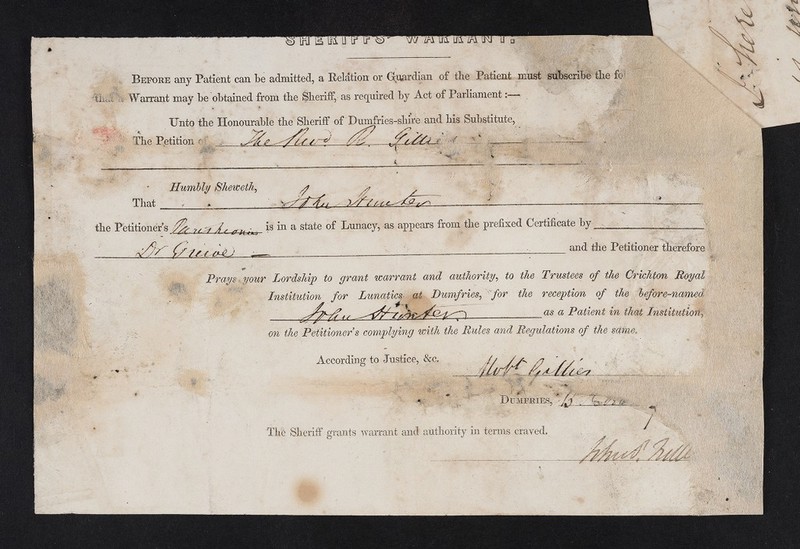 SHERIFF'S WARRANT.
BEFORE any Patient can be admitted, a Relation or Guardian of the Patient must subscribe the fo
that a Warrant may be obtained from the Sheriff, as required by Act of Parliament :—
Unto the Honourable the Sheriff of Dumfries-shire and his Substitute,
The Petition of The Revd R. Gillies
Humbly Sheweth,
That John Hunter
the Petitioner's Parishioner is in a state of Lunacy, as appears from the prefixed Certificate by
Dr Grieve and the Petitioner therefore
Prays your Lordship to grant warrant and authority, to the Trustees of the Crichton Royal
Institution for Lunatics at Dumfries, for the reception of the before-named
John Hunter as a Patient in that Institution,
on the Petitioner's complying with the Rules and Regulations of the same.
According to Justice, &c.
Robt Gillies
DUMFRIES,
The Sheriff grants warrant and authority in terms craved.